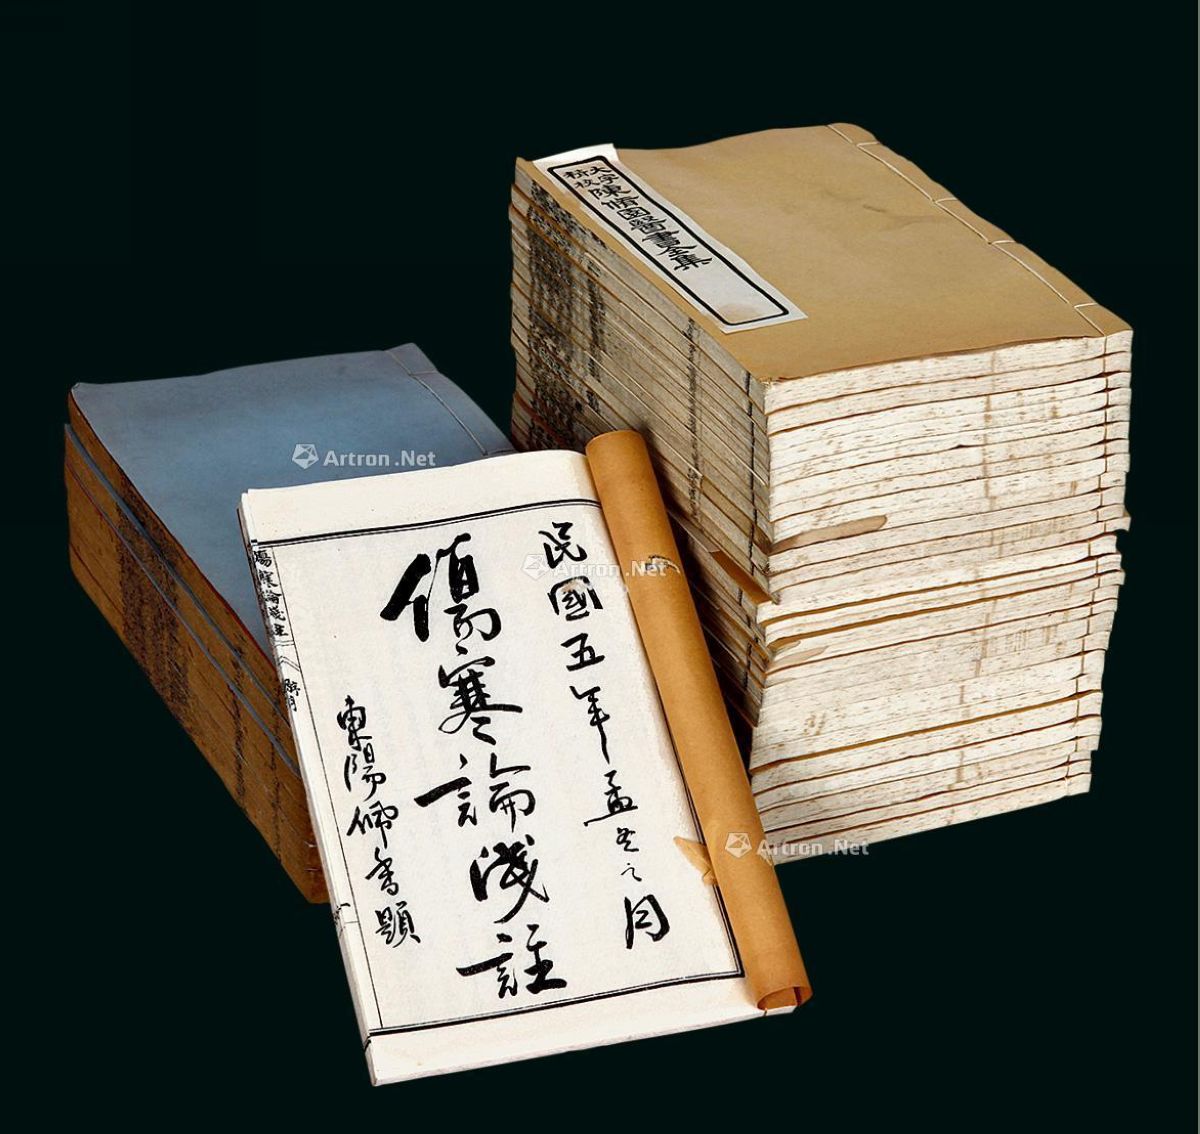 大字
精校
陳修園醫書全集
民國五年孟冬之月
傷寒論淺註
東陽佩香題
傷寒論淺註
Artron.Net
Artron.Net
Artron.Net